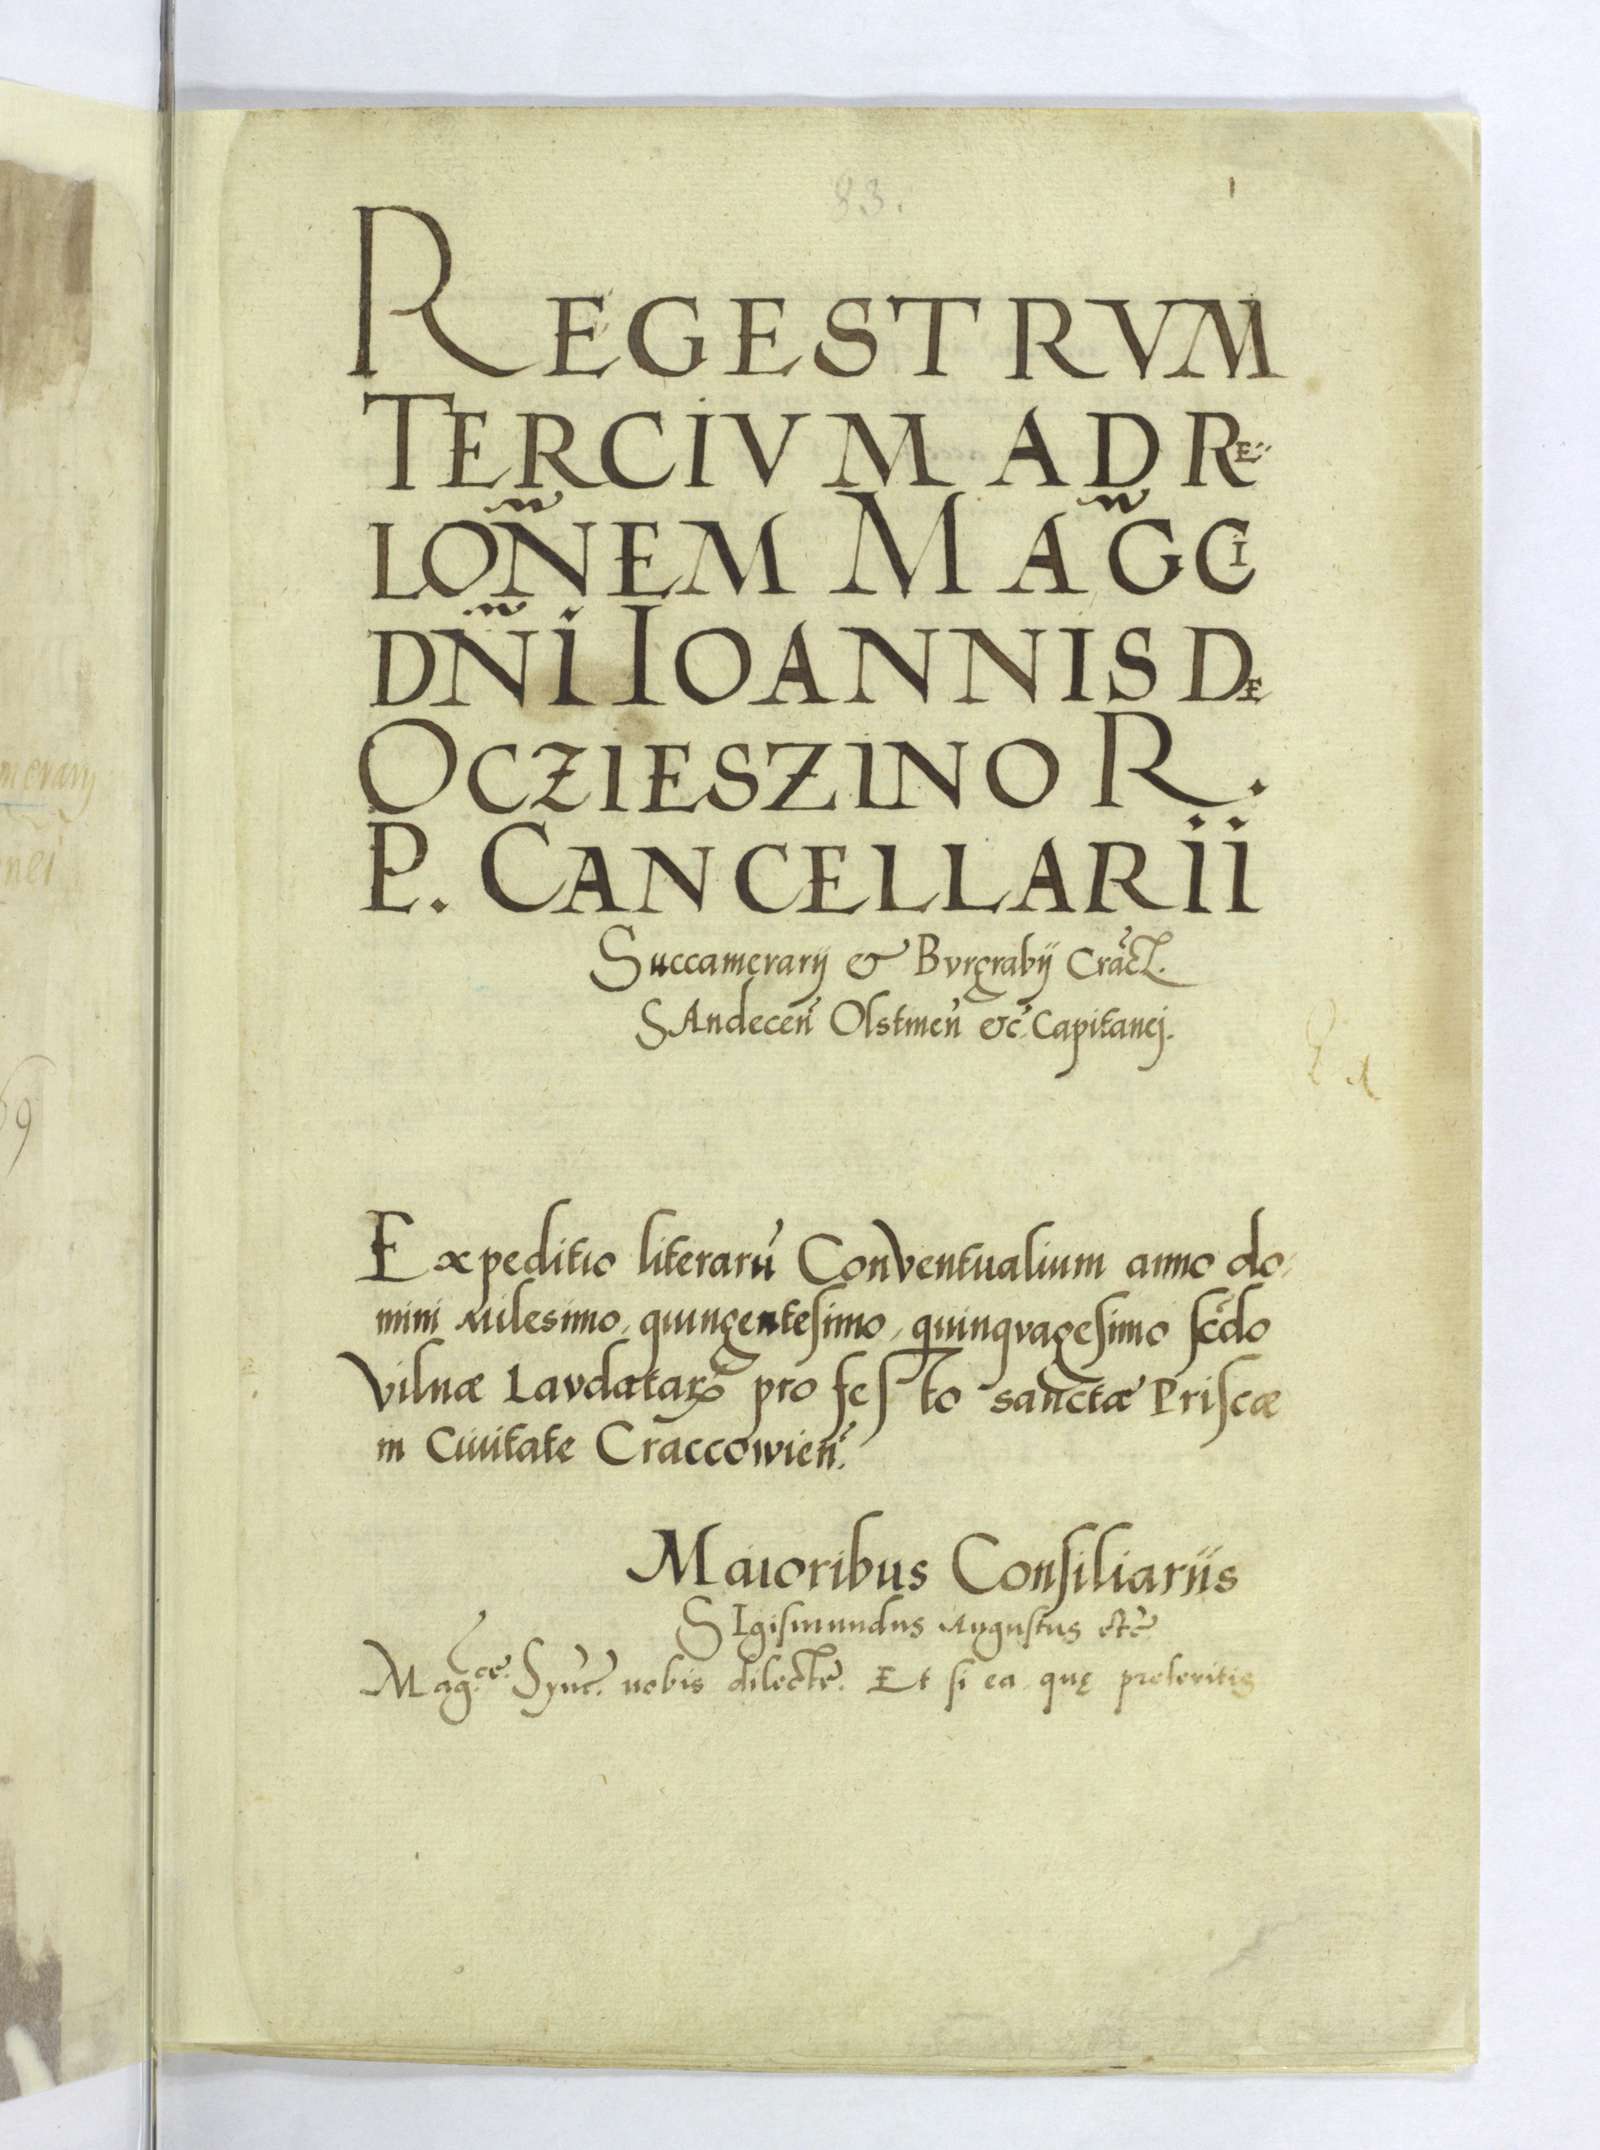 83.
1
REGESTRVM
TERCIVM AD RE-
LOÑEM MAG̃CI
DÑI IOANNIS DE
OCZIESZINO R.
P. CANCELLARII
Succamerarij & Bvrgrabij Crac̃.
SAndeceñ Olstineñ etc̃ Capitanej.
Expeditio literarũ Conventualium anno do-
mini Milesimo, quingentesimo, quinqvagesimo sc̃do
Vilnæ Lavdatarꝝ pro festo sanctæ Priscæ
in Ciuitate Craccowieñ.
Maioribus Consiliariis
SIgismundus Augustus etc̃
Mag.ce Sync̃. nobis dilecte. Et si ea quę preteritis
merarij
nei
69